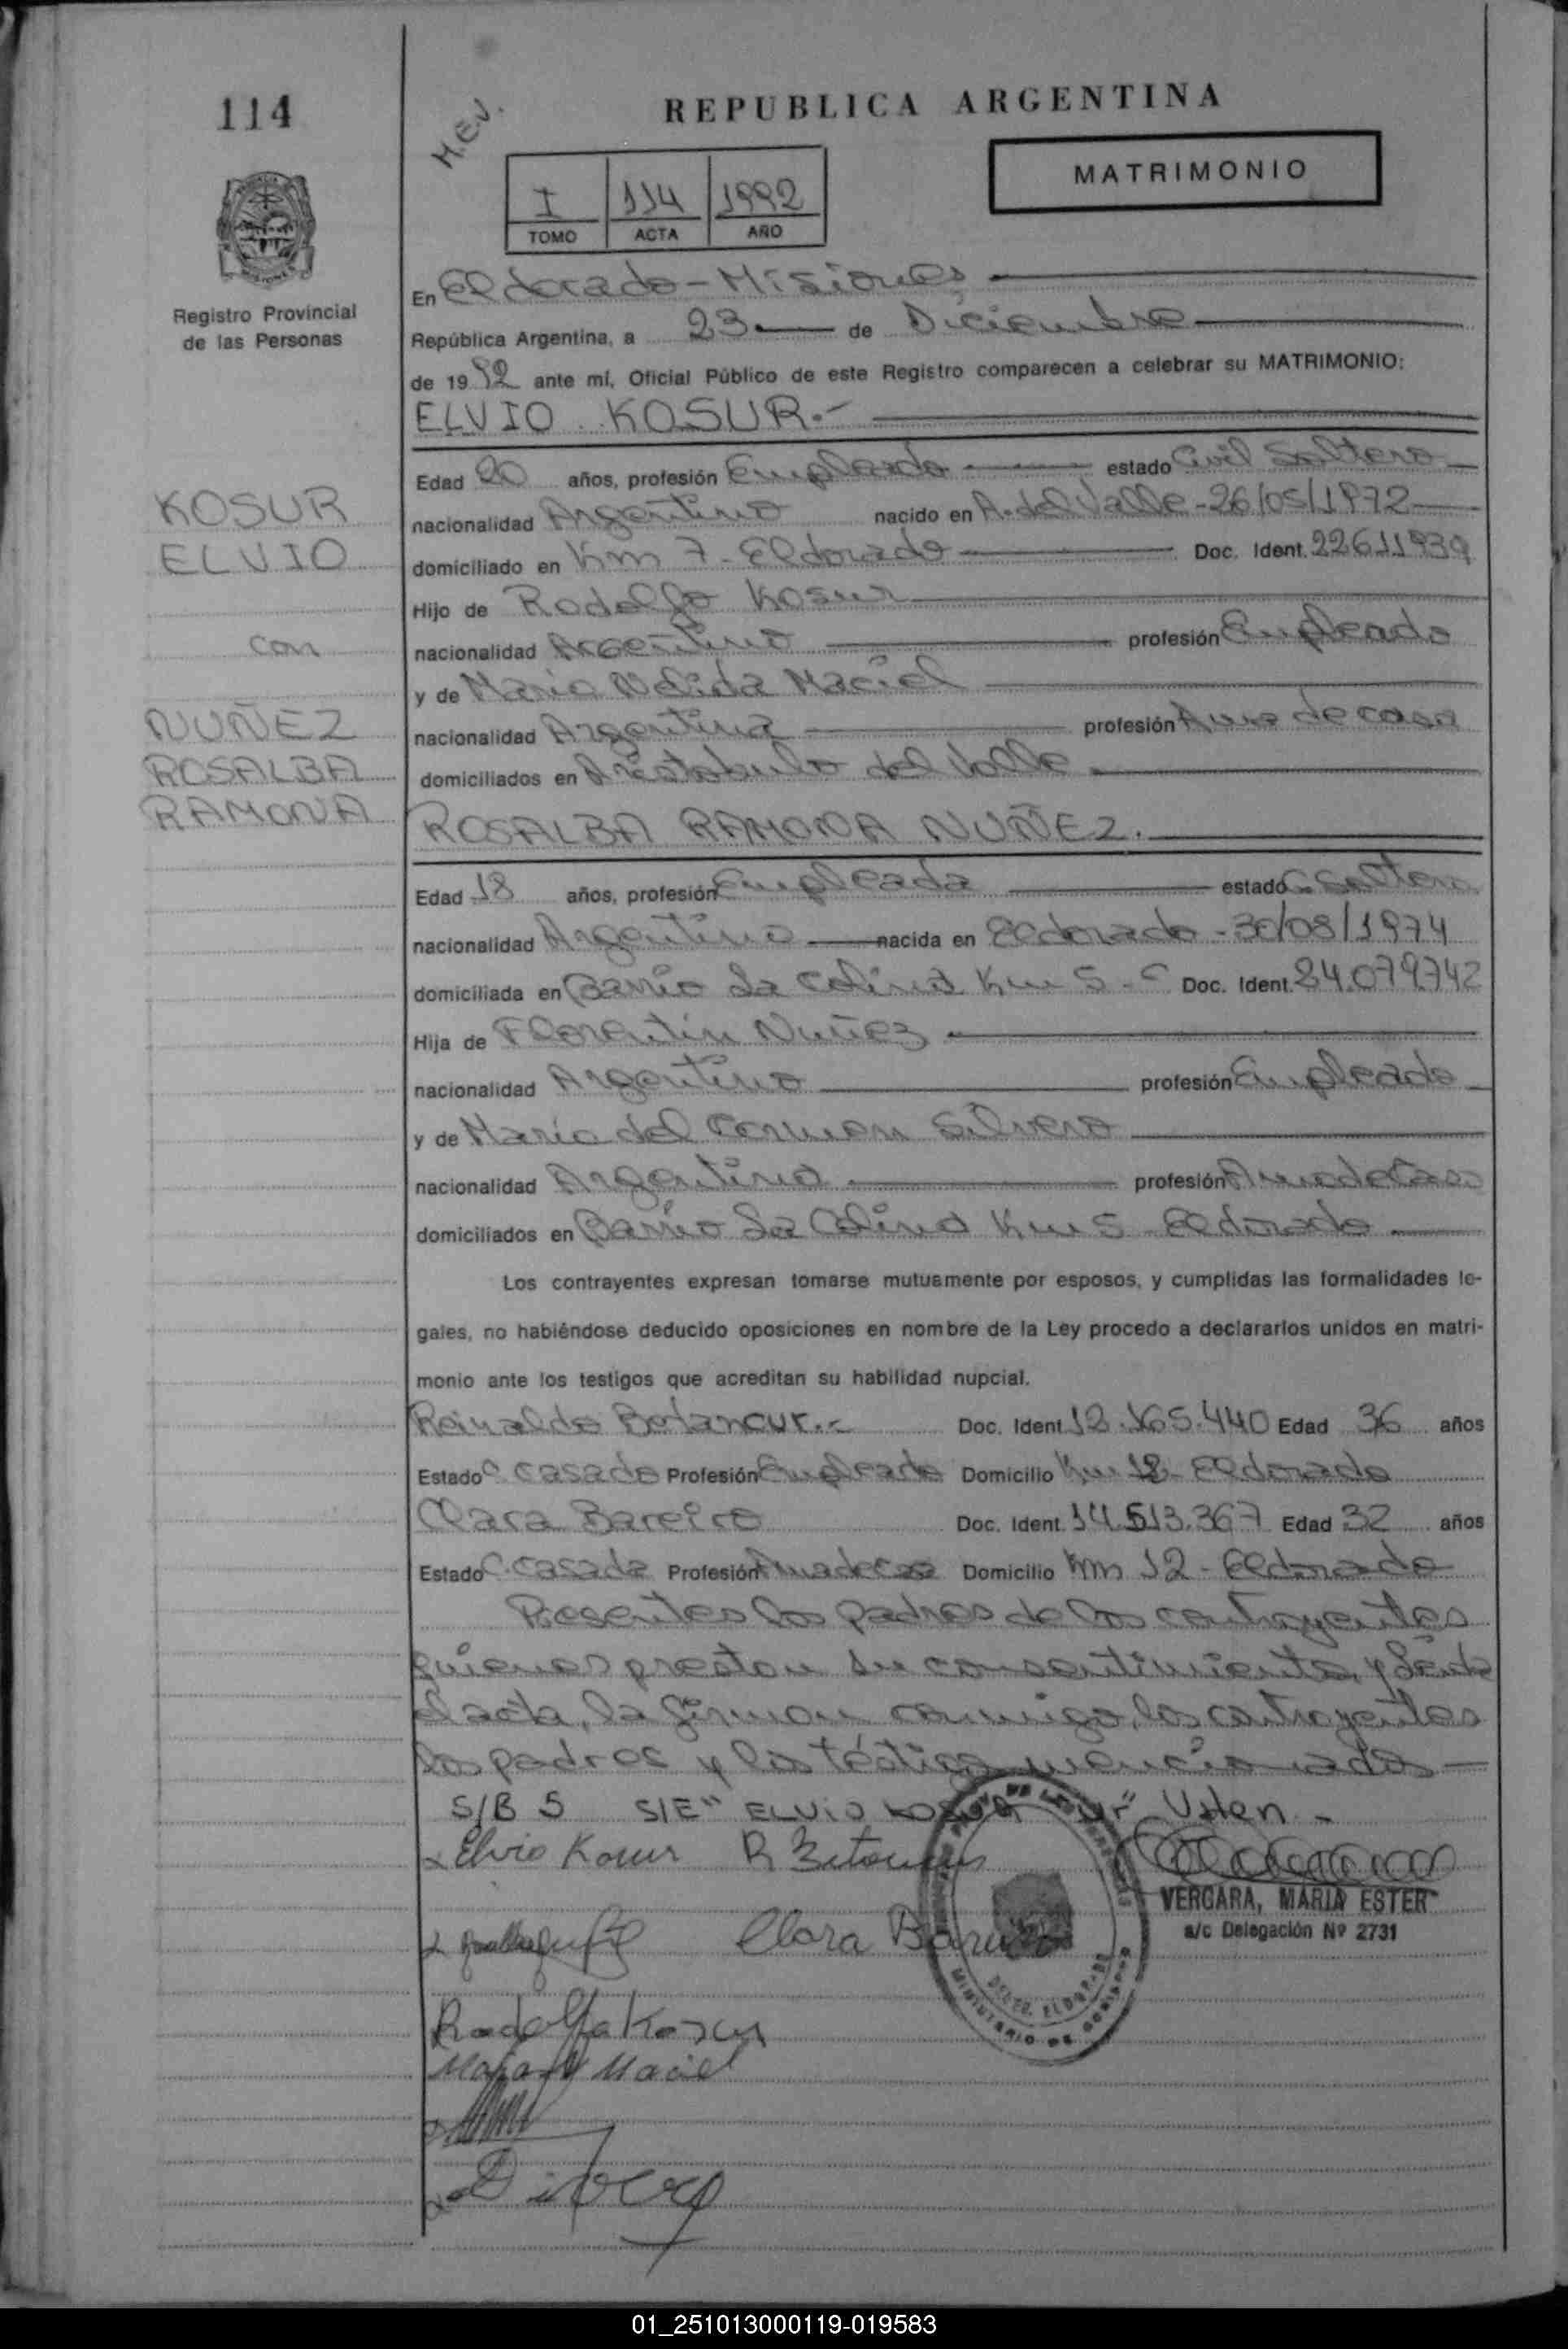 114
REPUBLICA ARGENTINA
H.E.V.
MATRIMONIO
I 114 1992
TOMO ACTA AÑO
Registro Provincial
de las Personas
En Eldorado - Misiones
República Argentina, a 23 de Diciembre
de 19 92 ante mí, Oficial Público de este Registro comparecen a celebrar su MATRIMONIO:
ELVIO KOSUR.-
Edad 20 años, profesión Empleado estado Civil Soltero
KOSUR
nacionalidad Argentino nacido en A. del Valle - 26/05/1972
ELVIO
domiciliado en Km 7 - Eldorado Doc. Ident. 22611939
Hijo de Rodolfo Kosur
con
nacionalidad Argentino profesión Empleado
y de Maria Nelida Maciel
NUÑEZ
nacionalidad Argentina profesión Ama de casa
ROSALBA
domiciliados en Aristobulo del Valle
RAMONA
ROSALBA RAMONA NUÑEZ.
Edad 18 años, profesión Empleada estado C. Soltera
nacionalidad Argentina nacida en Eldorado - 30/08/1974
domiciliada en Barrio La Colina Km 5 - Doc. Ident. 24.079.742
Hija de Florentin Nuñez
nacionalidad Argentino profesión Empleado
y de Maria del Carmen Silvero
nacionalidad Argentina profesión Ama de Casa
domiciliados en Barrio La Colina Km 5 Eldorado
Los contrayentes expresan tomarse mutuamente por esposos, y cumplidas las formalidades le-
gales, no habiéndose deducido oposiciones en nombre de la Ley procedo a declararlos unidos en matri-
monio ante los testigos que acreditan su habilidad nupcial.
Reinaldo Betancur.- Doc. Ident. 12.165.440 Edad 36 años
Estado C. casado Profesión Empleado Domicilio Km 12 - Eldorado
Clara Bareiro Doc. Ident. 14.513.367 Edad 32 años
Estado C. casada Profesión Ama de casa Domicilio Km 12 - Eldorado
Presentes los padres de los contrayentes
quienes prestan su consentimiento, y Leida
el acta, la firman conmigo, los contrayentes
los padres y los testigos mencionados
S/B 5 S/E" ELVIO KOSUR Valen -
Elvio Kosur R Betancur
VERGARA, MARIA ESTER
a/c Delegación Nº 2731
Clara Bareiro
MINISTERIO DE GOBIERNO
Rodolfo Kosur
Maria N Maciel
01_251013000119-019583